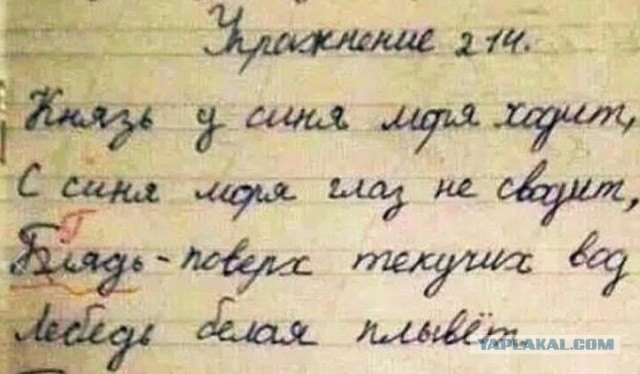 Упражнение 214.
Князь у синя моря ходит,
С синя моря глаз не сводит,
Г
Блядь - поверх текучих вод
Лебедь белая плывёт.
YAPLAKAL.COM